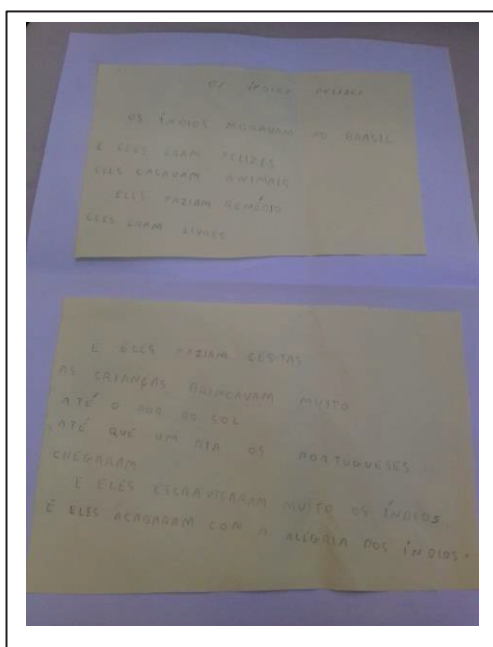 OS ÍNDIOS
OS ÍNDIOS MORAVAM NO BRASIL
E ELES ERAM FELIZES
ELES CASAVAM ANIMAIS
ELES FAZIAM REMÉDIO
ELES ERAM LIVRES
E ELES FAZIAM FESTAS
AS CRIANÇAS BRINCAVAM MUITO
ATÉ O POR DO SOL
ATÉ QUE UM DIA OS PORTUGUESES
CHEGARAM
E ELES ESCRAVISARAM MUITO OS ÍNDIOS.
E ELES ACABARAM COM A ALEGRIA DOS ÍNDIOS.